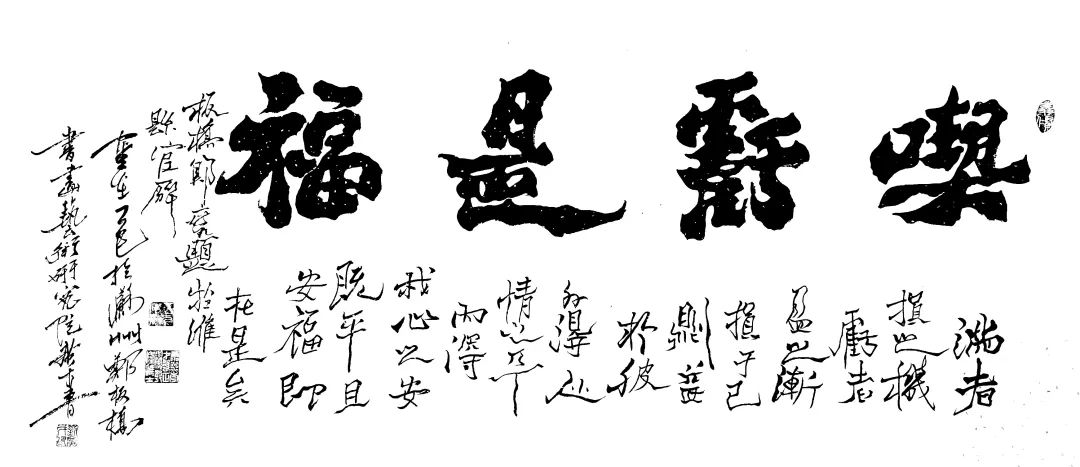 喫虧是福
滿者
損之機
虧者
盈之漸
損于己
則益
於彼
外得人
情之平
內得
我心之安
既平且
安福即
在是矣
板橋鄭燮題於濰
縣官廨
鄭板橋
書畫藝術研究院 書